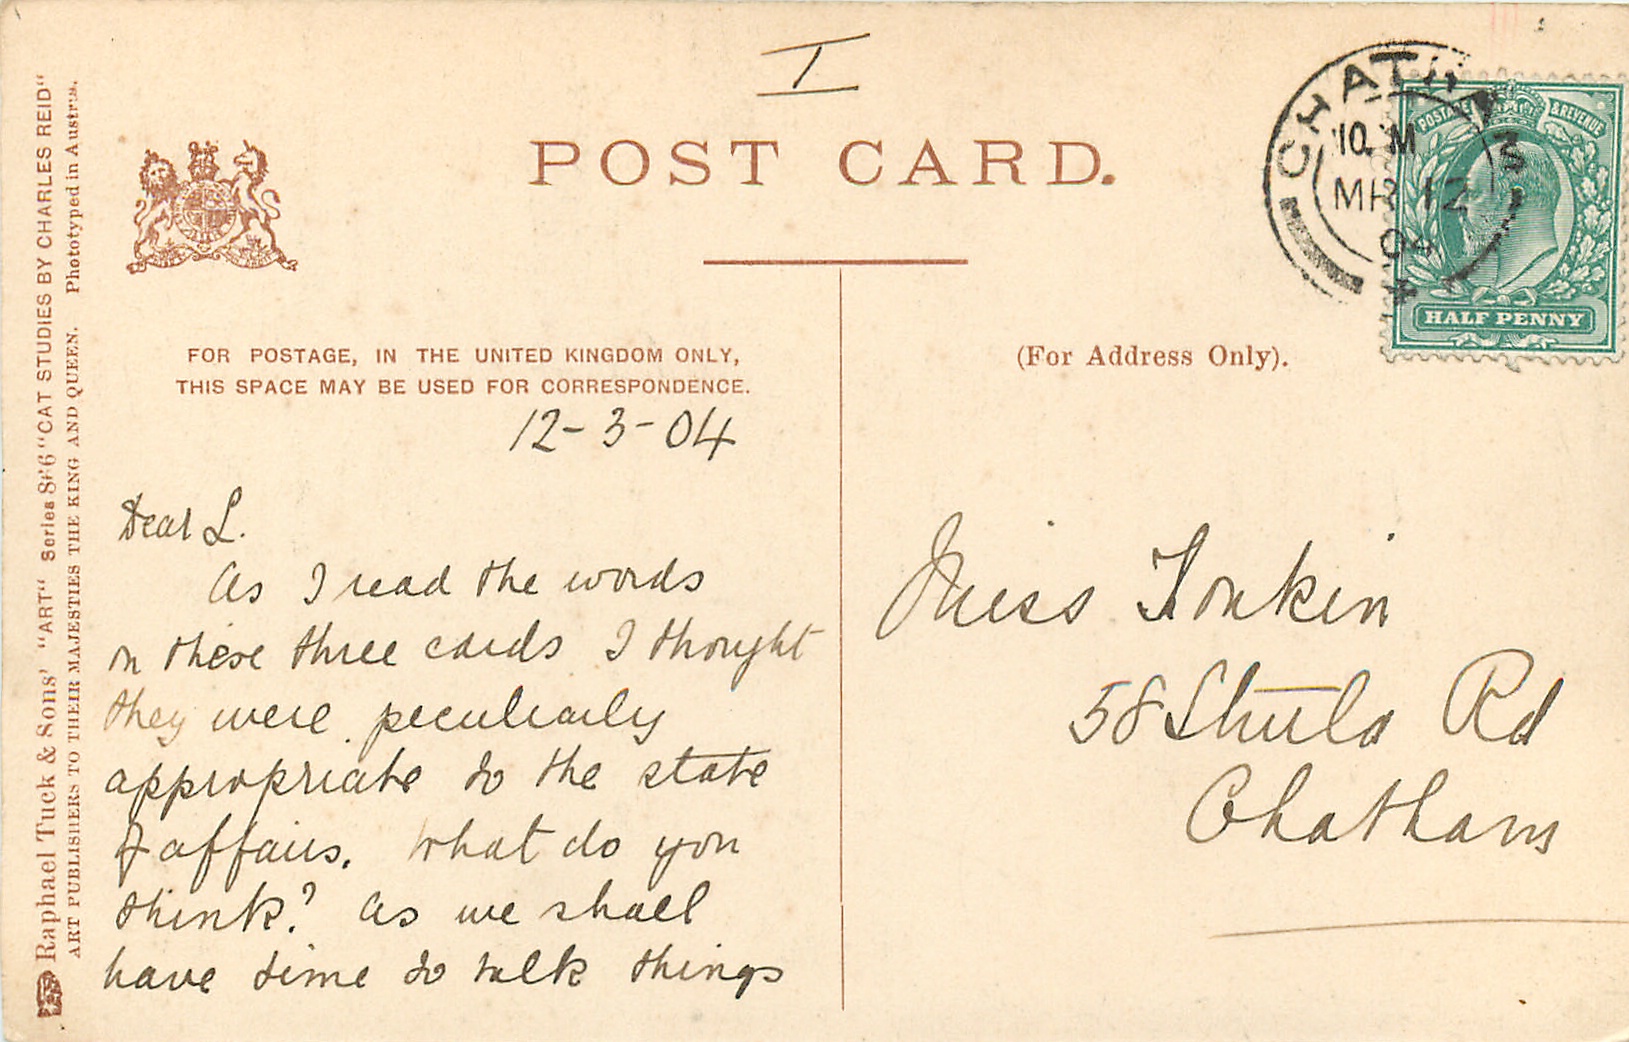 I
POST CARD.
CHATHAM
10. M
MR 12
04
POSTAGE & REVENUE
HALF PENNY
FOR POSTAGE, IN THE UNITED KINGDOM ONLY,
THIS SPACE MAY BE USED FOR CORRESPONDENCE.
(For Address Only).
12-3-04
Dear L.
As I read the words
on these three cards I thought
they were peculiarly
appropriate to the state
of affairs. What do you
think? As we shall
have time to talk things
Miss Tonkin
58 Rd
Chatham
Raphael Tuck & Sons' "ART" Series "CAT STUDIES BY CHARLES REID"
ART PUBLISHERS TO THEIR MAJESTIES THE KING AND QUEEN. Phototyped in Austria.